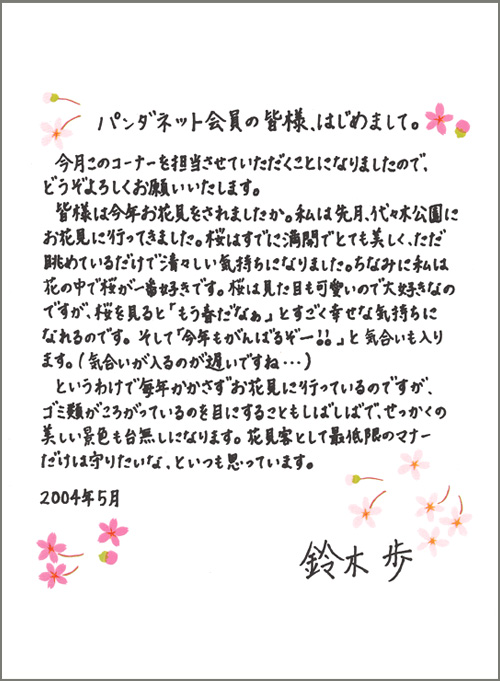 パンダネット会員の皆様、はじめまして。
今月このコーナーを担当させていただくことになりましたので、
どうぞよろしくお願いいたします。
皆様は今年お花見をされましたか。私は先月、代々木公園に
お花見に行ってきました。桜はすでに満開でとても美しく、ただ
眺めているだけで清々しい気持ちになりました。ちなみに私は
花の中で桜が一番好きです。桜は見た目も可愛いので大好きなの
ですが、桜を見ると「もう春だなぁ」とすごく幸せな気持ちに
なれるのです。そして「今年もがんばるぞー!!」と気合いも入り
ます。(気合いが入るのが遅いですね…)
というわけで毎年かかさずお花見に行っているのですが、
ゴミ類がころがっているのを目にすることもしばしばで、せっかくの
美しい景色も台無しになります。花見客として最低限のマナー
だけは守りたいな、といつも思っています。
2004年5月
鈴木 歩